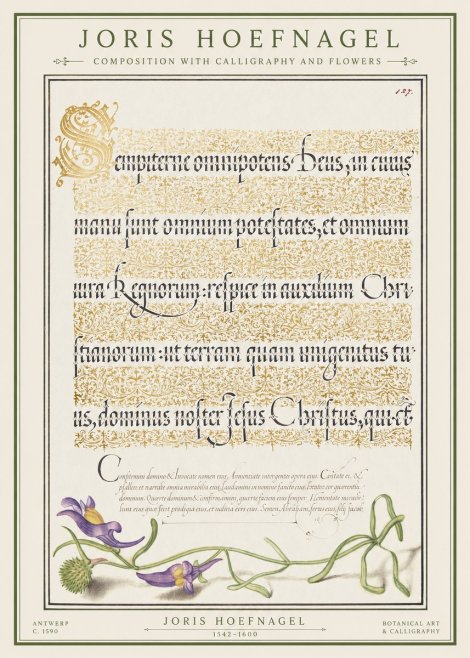 JORIS HOEFNAGEL
COMPOSITION WITH CALLIGRAPHY AND FLOWERS
127.
Sempiterne omnipotens Deus, in cuius
manu sunt omnium potestates, et omnium
iura Regnorum: respice in auxilium Chri-
stianorum: ut terram quam unigenitus tu-
us, dominus noster Jesus Christus, qui et
Confitemini domino & Invocate nomen eius, Annunciate inter gentes opera eius. Cantate ei, &
psallite ei narrate omnia mirabilia eius, Laudamini in nomine sancto eius, letetur cor querentiū
dominum. Querite dominum & confirmamini, querite faciem eius semper. Mementote mirabi-
lium eius que fecit prodigia eius, et iudicia oris eius. Semen Abraham, servi eius, filij Jacob
ANTWERP
C. 1590
JORIS HOEFNAGEL
1542–1600
BOTANICAL ART
& CALLIGRAPHY